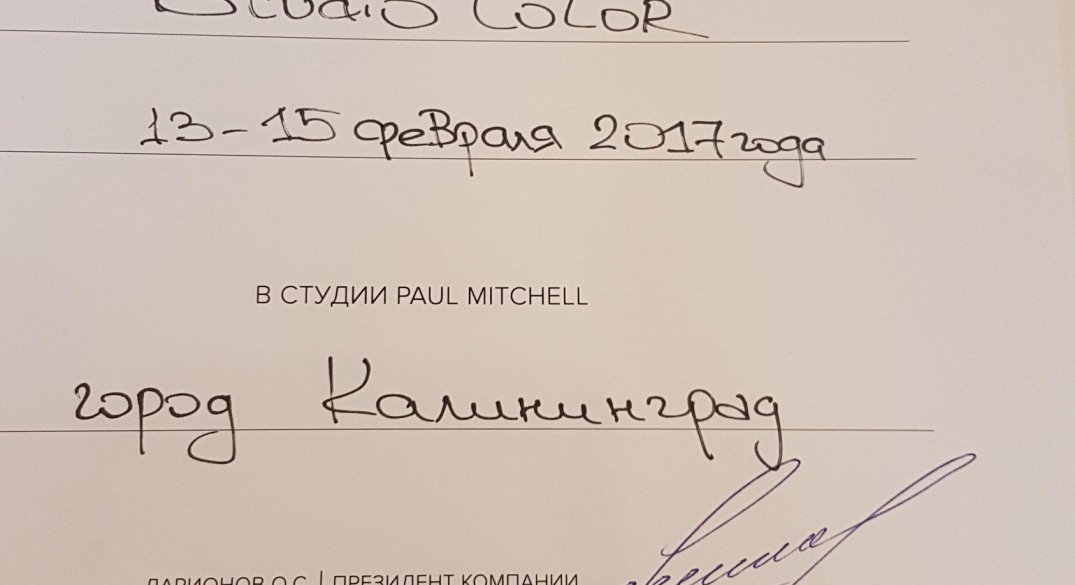 Studio Color
13-15 февраля 2017 года
В СТУДИИ PAUL MITCHELL
город Калининград
ЛАРИОНОВ О.С. | ПРЕЗИДЕНТ КОМПАНИИ